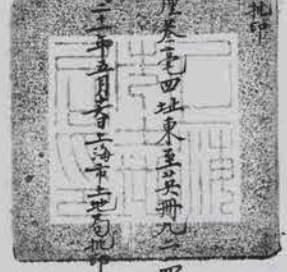 批印
厘叁毫四址東至英冊九二四
年五月日上海市土地局批印